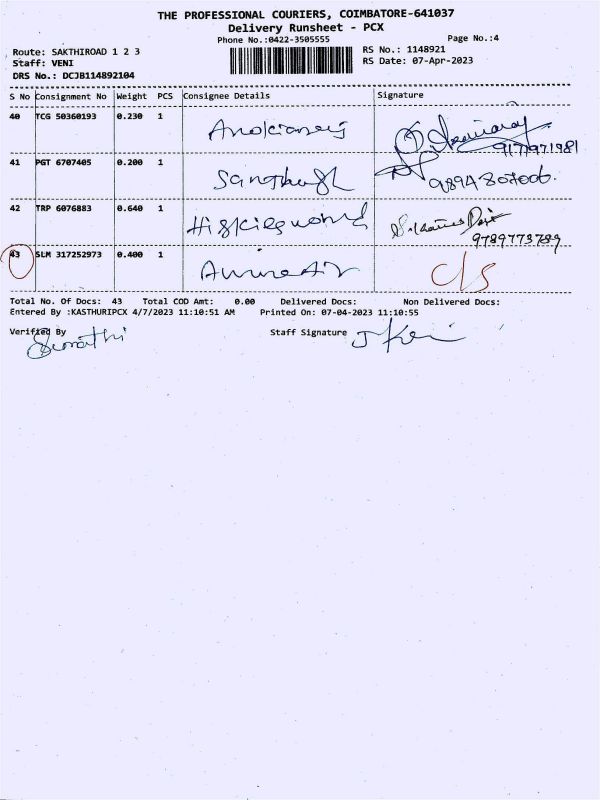 THE PROFESSIONAL COURIERS, COIMBATORE-641037
Delivery Runsheet - PCX
Phone No.:0422-3505555 Page No.:4
Route: SAKTHIROAD 1 2 3 RS No.: 1148921
Staff: VENI RS Date: 07-Apr-2023
DRS No.: DCJB114892104
S No Consignment No Weight PCS Consignee Details Signature
40 TCG 50360193 0.230 1
9171971981
41 PGT 6707405 0.200 1
42 TRP 6076883 0.640 1
9789773789
43 SLM 317252973 0.400 1 C/S
Total No. Of Docs: 43 Total COD Amt: 0.00 Delivered Docs: Non Delivered Docs:
Entered By :KASTHURIPCX 4/7/2023 11:10:51 AM Printed On: 07-04-2023 11:10:55
Verified By Staff Signature